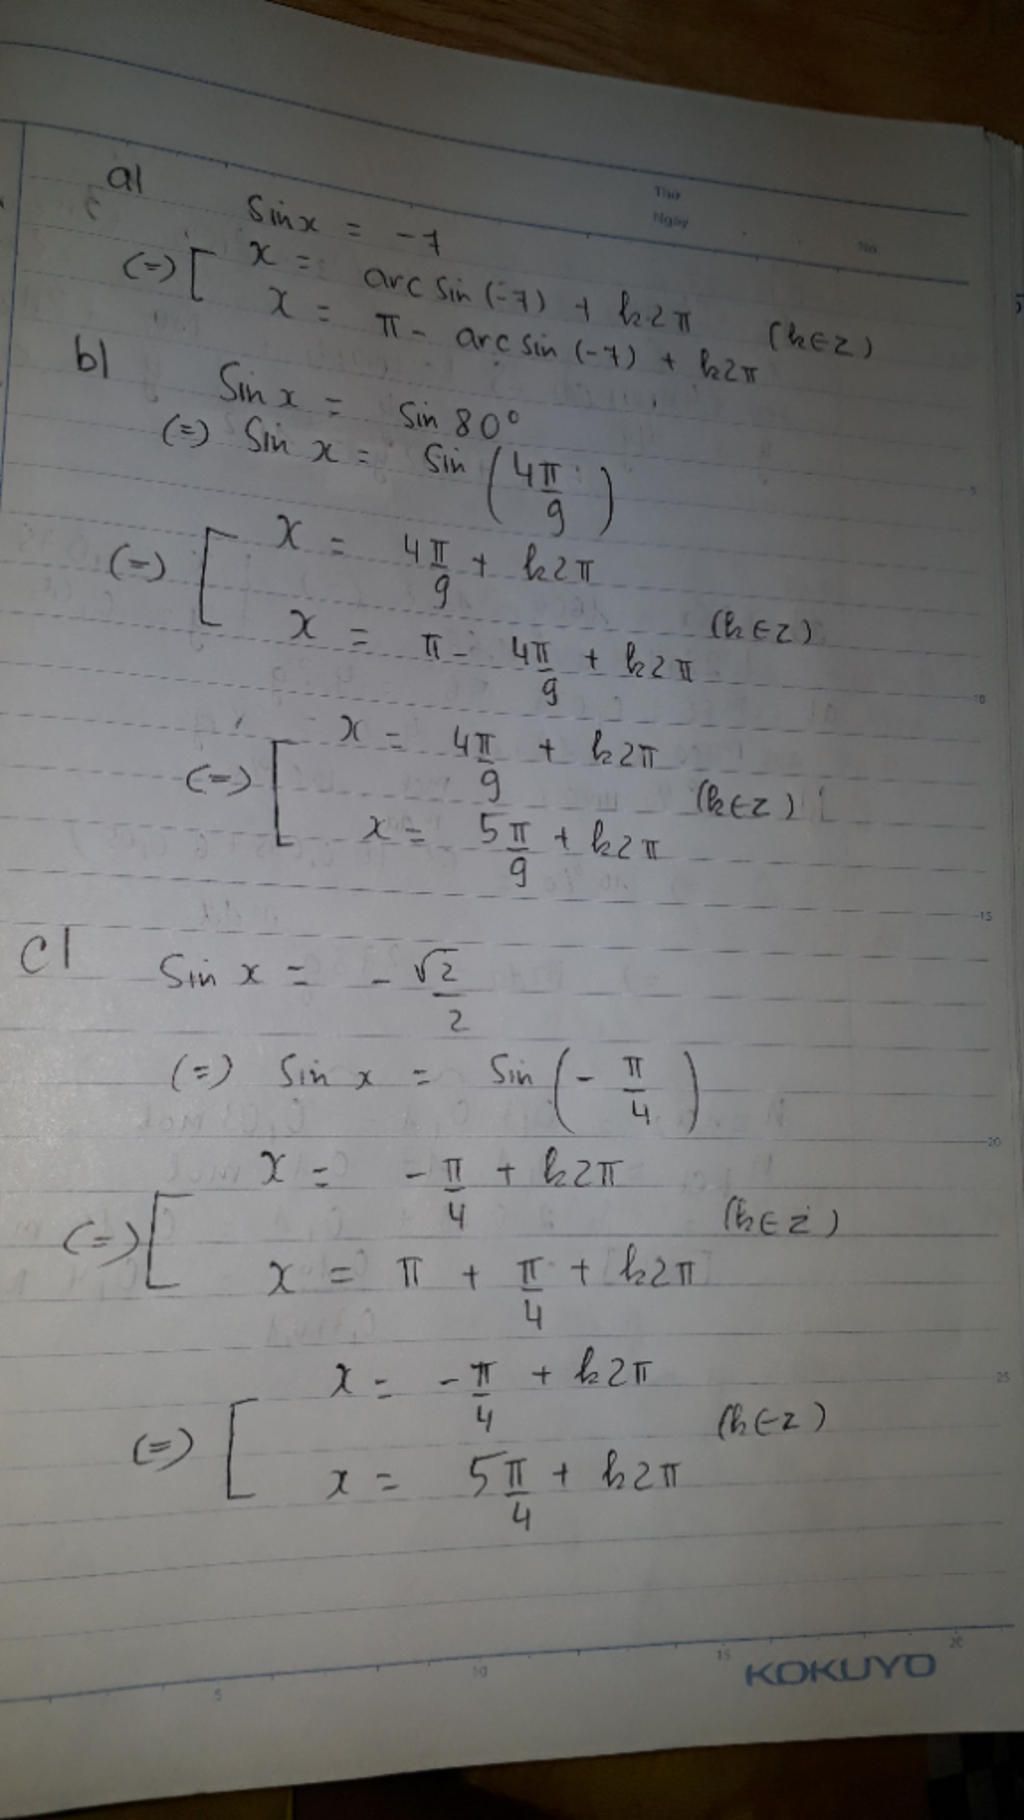 Thứ
Ngày
No
a)
sin x = -7
(=) [ x = arc sin (-7) + k2π
x = π - arc sin (-7) + k2π (k∈Z)
b)
Sin x = sin 80°
(=) Sin x = sin (4π/9)
(=) [ x = 4π/9 + k2π
x = π - 4π/9 + k2π (k∈Z)
(=) [ x = 4π/9 + k2π
x = 5π/9 + k2π (k∈Z)
c)
Sin x = -√2/2
(=) Sin x = Sin (-π/4)
(=) [ x = -π/4 + k2π
x = π + π/4 + k2π (k∈Z)
(=) [ x = -π/4 + k2π
x = 5π/4 + k2π (k∈Z)
5
10
15
20
25
5
10
15
20
KOKUYO